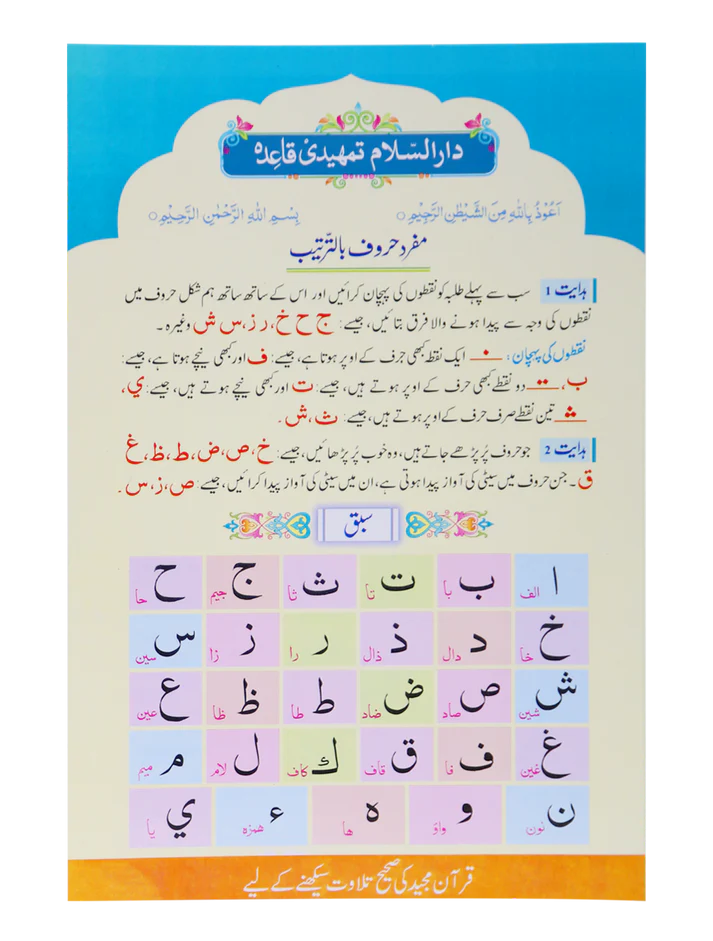 دار السّلام تمهیدی قاعِدہ
اَعُوْذُ بِاللّٰهِ مِنَ الشَّیْطٰنِ الرَّجِیْمِ ○ بِسْمِ اللّٰهِ الرَّحْمٰنِ الرَّحِیْمِ ○
مفرد حروف بالتّرتیب
ہدایت 1 سب سے پہلے طلبہ کو نقطوں کی پہچان کرائیں اور اس کے ساتھ ساتھ ہم شکل حروف میں
نقطوں کی وجہ سے پیدا ہونے والا فرق بتائیں، جیسے: ج ح خ، ر ز، س ش وغیرہ۔
نقطوں کی پہچان: ایک نقطہ کبھی حرف کے اوپر ہوتا ہے، جیسے: ف اور کبھی نیچے ہوتا ہے، جیسے:
ب، دو نقطے کبھی حرف کے اوپر ہوتے ہیں، جیسے: ت اور کبھی نیچے ہوتے ہیں، جیسے: ي،
تین نقطے صرف حرف کے اوپر ہوتے ہیں، جیسے: ث، ش۔
ہدایت 2 جو حروف پُر پڑھے جاتے ہیں، وہ خوب پُر پڑھائیں، جیسے: خ، ص، ض، ط، ظ، غ
ق۔ جن حروف میں سیٹی کی آواز پیدا ہوتی ہے، ان میں سیٹی کی آواز پیدا کرائیں، جیسے: ص، ز، س۔
سبق
ا الف ب با ت تا ث ثا ج جیم ح حا
خ خا د دال ذ ذال ر را ز زا س سین
ش شین ص صاد ض ضاد ط طا ظ ظا ع عین
غ غین ف فا ق قاف ك کاف ل لام م میم
ن نون و واؤ ه ها ء همزه ي یا
قرآن مجید کی صحیح تلاوت سیکھنے کے لیے